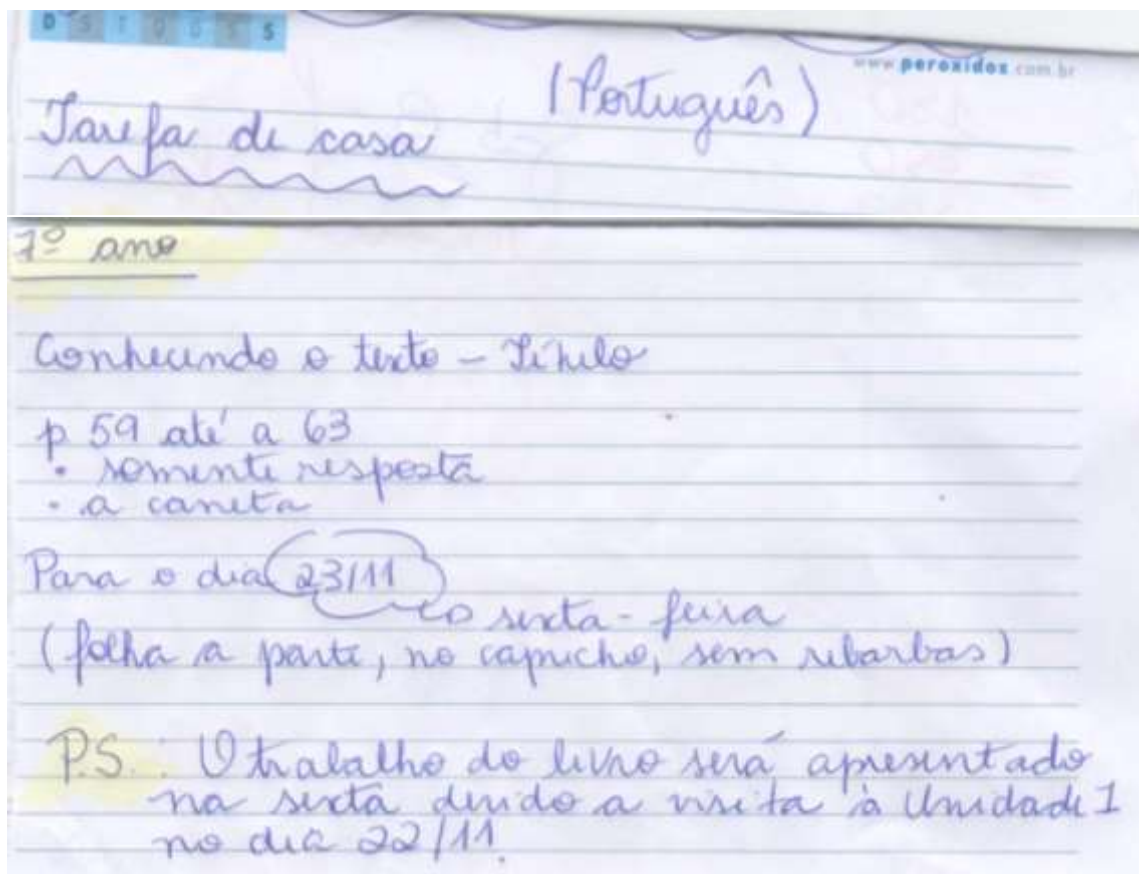 D S T Q Q S S
www.peroxidos.com.br
(Português)
Tarefa de casa
7º ano
Conhecendo o texto - Título
p 59 até a 63
• somente resposta
• a caneta
Para o dia 23/11
sexta-feira
(folha a parte, no capricho, sem rebarbas)
P.S.: O trabalho do livro será apresentado
na sexta devido a visita à Unidade 1
no dia 22/11.